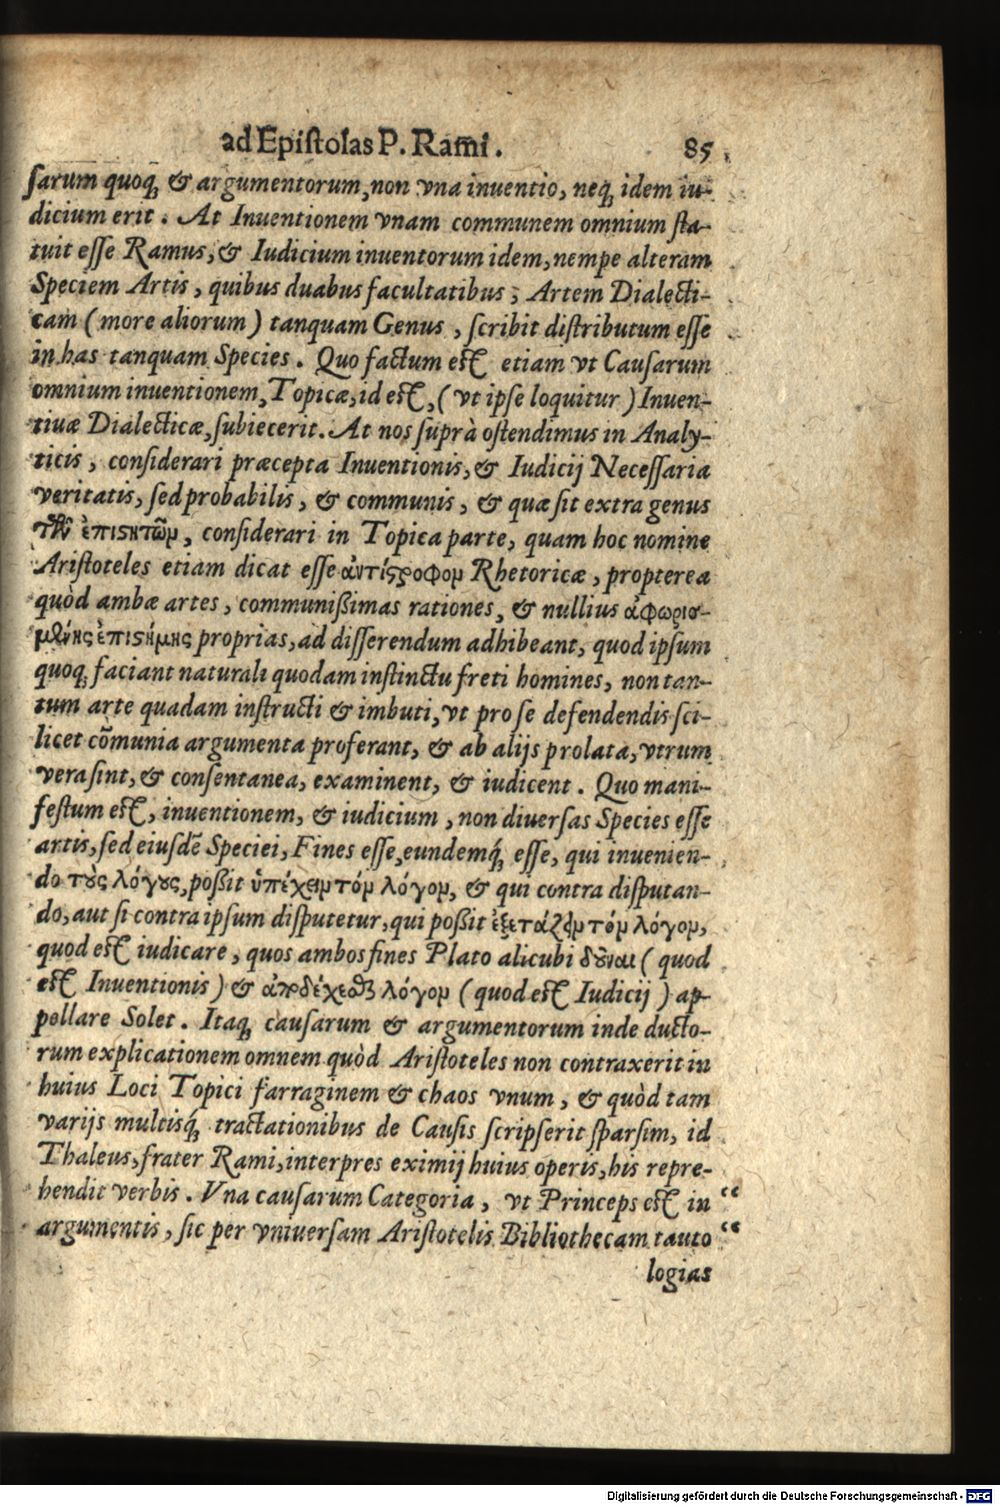 ad Epistolas P. Rami. 85
sarum quoq; & argumentorum, non vna inuentio, neq; idem iu-
dicium erit. At Inuentionem vnam communem omnium sta-
tuit esse Ramus, & Iudicium inuentorum idem, nempe alteram
Speciem Artis, quibus duabus facultatibus, Artem Dialecti-
cam (more aliorum) tanquam Genus, scribit distributum esse
in has tanquam Species. Quo factum est etiam vt Causarum
omnium inuentionem, Topicæ, id est, (vt ipse loquitur) Inuen-
tiuæ Dialecticæ, subiecerit. At nos suprà ostendimus in Analy-
ticis, considerari præcepta Inuentionis, & Iudicij Necessaria
veritatis, sed probabilis, & communis, & quæ sit extra genus
τῶν ἐπιστητῶν, considerari in Topica parte, quam hoc nomine
Aristoteles etiam dicat esse ἀντίστροφομ Rhetoricæ, propterea
quòd ambæ artes, communißimas rationes, & nullius ἀφωρισ-
μένης ἐπιστήμης proprias, ad disserendum adhibeant, quod ipsum
quoq; faciant naturali quodam instinctu freti homines, non tan-
tum arte quadam instructi & imbuti, vt pro se defendendis sci-
licet cõmunia argumenta proferant, & ab alijs prolata, vtrum
vera sint, & consentanea, examinent, & iudicent. Quo mani-
festum est, inuentionem, & iudicium, non diuersas Species esse
artis, sed eiusdẽ Speciei, Fines esse, eundemq́; esse, qui inuenien-
do τοὺς λόγους, poßit ὑπέχειμ τόμ λόγομ, & qui contra disputan-
do, aut si contra ipsum disputetur, qui poßit ἐξετάζειμ τόμ λόγομ,
quod est iudicare, quos ambos fines Plato alicubi δοῦναι (quod
est Inuentionis) & ἀποδέχεσθαι λόγομ (quod est Iudicij) ap-
pellare Solet. Itaq; causarum & argumentorum inde ducto-
rum explicationem omnem quòd Aristoteles non contraxerit in
huius Loci Topici farraginem & chaos vnum, & quòd tam
varijs multisq́; tractationibus de Causis scripserit sparsim, id
Thaleus, frater Rami, interpres eximij huius operis, his repre-
hendit verbis. Vna causarum Categoria, vt Princeps est in “
argumentis, sic per vniuersam Aristotelis Bibliothecam tauto “
logias
Digitalisierung gefördert durch die Deutsche Forschungsgemeinschaft - DFG